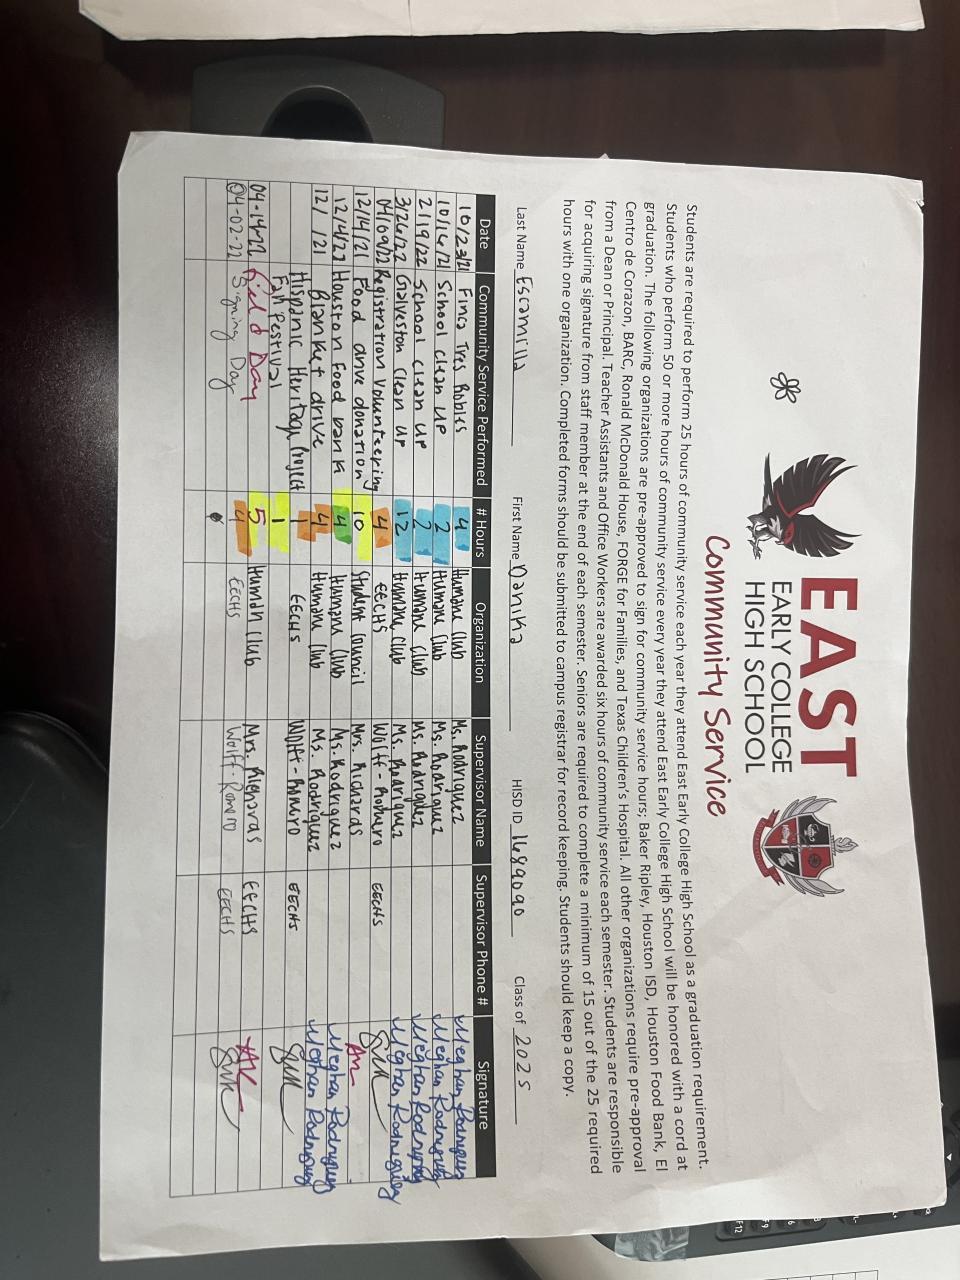 EAST
EARLY COLLEGE
HIGH SCHOOL
Community Service
Students are required to perform 25 hours of community service each year they attend East Early College High School as a graduation requirement.
Students who perform 50 or more hours of community service every year they attend East Early College High School will be honored with a cord at
graduation. The following organizations are pre-approved to sign for community service hours; Baker Ripley, Houston ISD, Houston Food Bank, El
Centro de Corazon, BARC, Ronald McDonald House, FORGE for Families, and Texas Children's Hospital. All other organizations require pre-approval
from a Dean or Principal. Teacher Assistants and Office Workers are awarded six hours of community service each semester. Students are responsible
for acquiring signature from staff member at the end of each semester. Seniors are required to complete a minimum of 15 out of the 25 required
hours with one organization. Completed forms should be submitted to campus registrar for record keeping. Students should keep a copy.
Last Name Escamilla First Name Danika HISD ID 1689090 Class of 2025
Date Community Service Performed # Hours Organization Supervisor Name Supervisor Phone # Signature
10/23/21 Finca Tres Robles 4 Humane Club Ms. Rodriguez Meghan Rodriguez
10/16/21 School clean up 2 Humane Club Ms. Rodriguez Meghan Rodriguez
2/19/22 School clean up 2 Humane Club Ms. Rodriguez Meghan Rodriguez
3/26/22 Galveston Clean up 12 Humane Club Ms. Rodriguez Meghan Rodriguez
04/09/22 Registration Volunteering 4 EECHS Wolff-Romero EECHS
12/14/21 Food drive donation 10 Student Council Mrs. Richards
12/4/21 Houston Food bank 4 Humane Club Ms. Rodriguez Meghan Rodriguez
12/ /21 Blanket drive 4 Humane Club Ms. Rodriguez Meghan Rodriguez
Hispanic Heritage Project 1 EECHS Wolff-Romero EECHS
Fall Festival 1
04-14-22 Field Day 5 Human Club Mrs. EECHS
04-02-22 Signing Day 4 EECHS Wolff-Romero EECHS
F12
F9